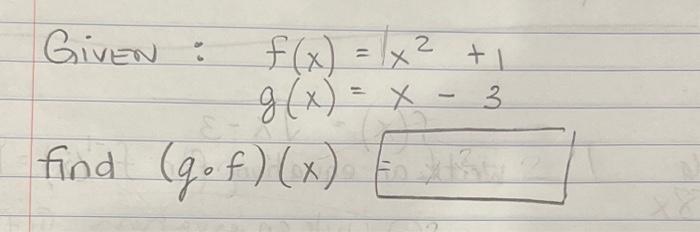 Given : f(x) = x² + 1
g(x) = x - 3
find (g∘f)(x) =